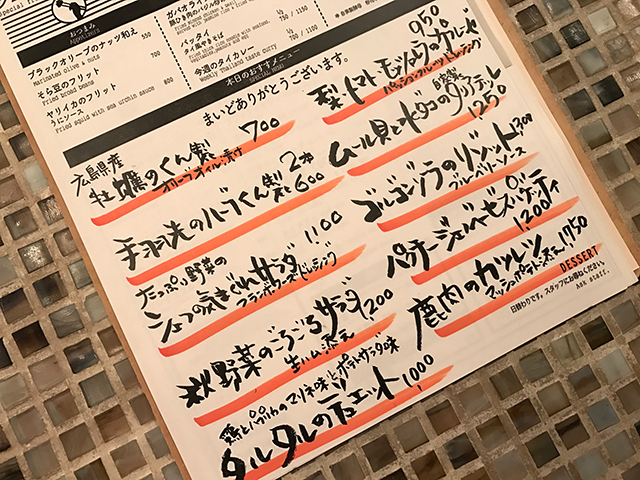 おつまみ
Appetizers
ブラックオリーブのナッツ和え 550
Marinated olive & nuts
そら豆のフリット 700
Fried broad beans
ヤリイカのフリット
うにソース 800
Fried squid with sea urchin sauce
パッタイ
タイ風やきそば
今週のタイカレー
Weekly Thailand taste curry
本日のおすすめメニュー
SPECIAL MENU
まいどありがとうございます。
広島県産
牡蠣のくん製 700
オリーブオイル漬け
手羽先のハーブくん製 2本 600
たっぷり野菜の
シェフの気まぐれサラダ 1100
フランボワーズドレッシング
秋野菜のごろごろサラダ 1200
生ハム添え
鶏とパプリカのマリネ味とポテトサラダ味
タルタルのデュエット 1,000
梨、トマト、モッツァレラのカプレーゼ 950
パッションフルーツドレッシング
自家製
ムール貝と水タコのタリアテッレ 1250
ゴルゴンゾーラのリゾット 1300
ブルーベリーソース
パンチェッタ
鹿肉のカツレツ 1750
マッシュポテト添え
DESSERT
日替わりです。スタッフにお尋ねください。
Ask staff.